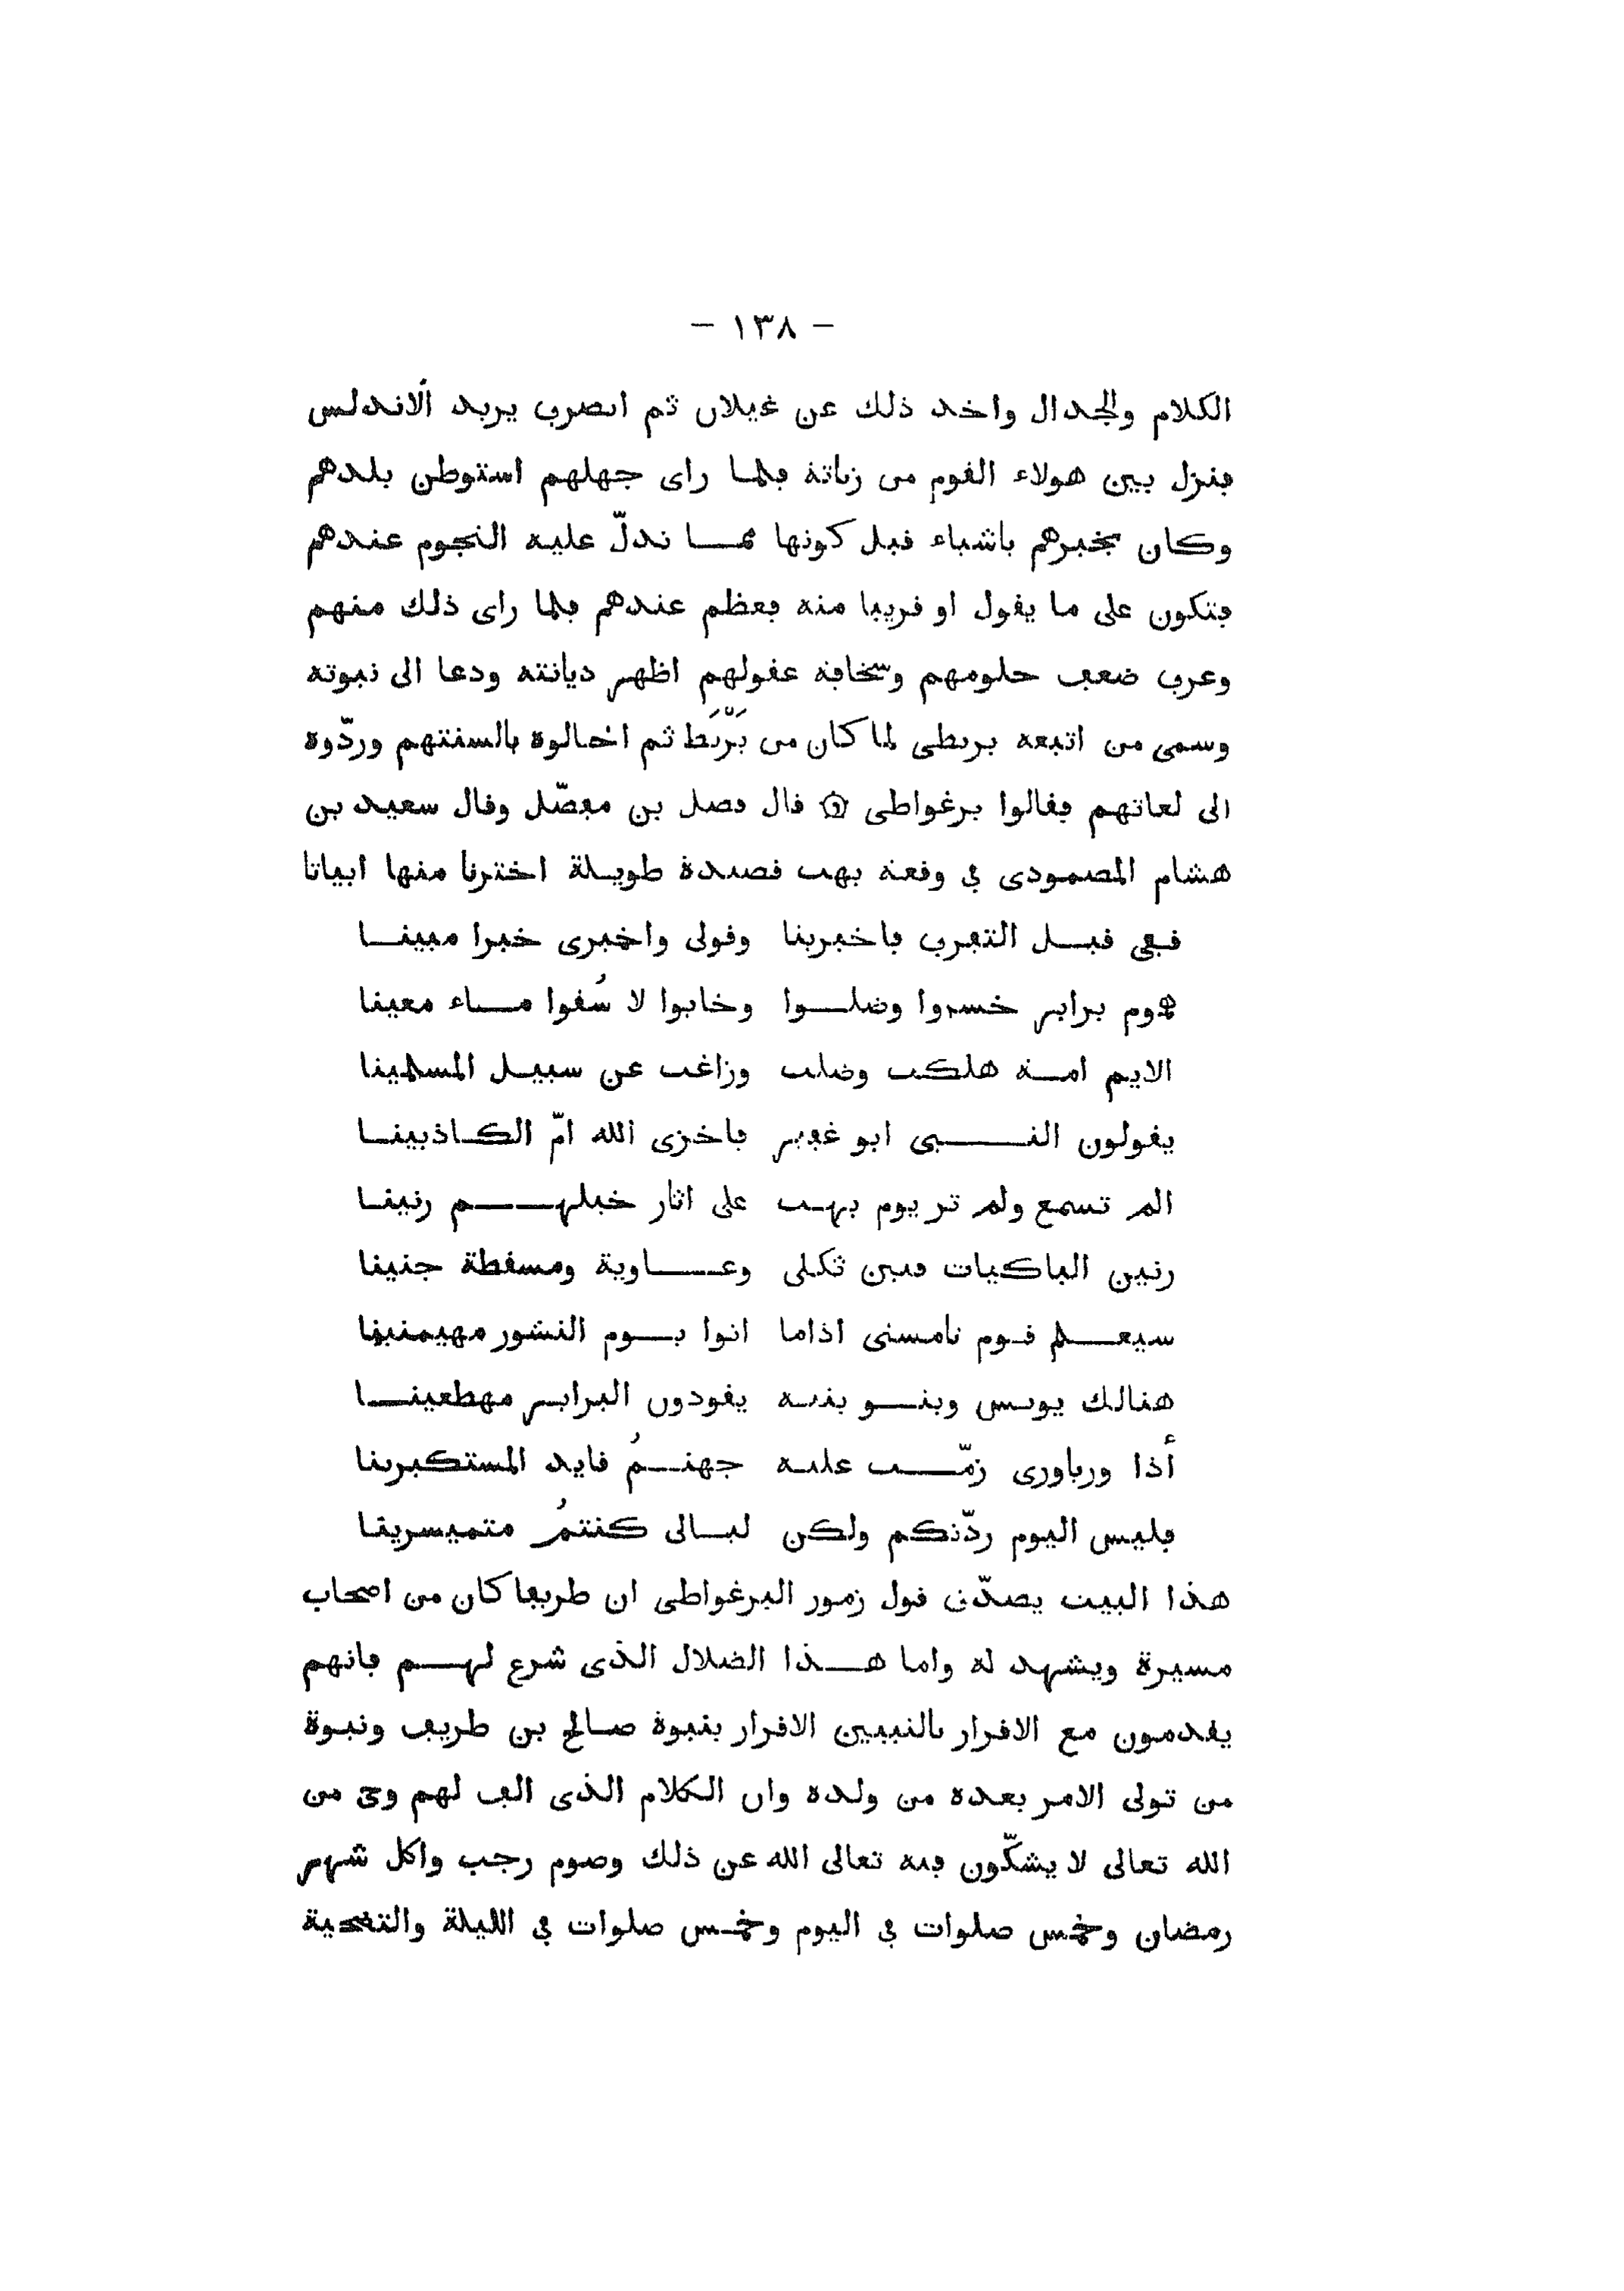 - ١٣٨ -
الكلام والجدال واخذ ذلك عن غيلان ثم انصرڢ يريد الاندلس
ڢنزل بين هولاء الفوم من زناتة ڢلما راى جهلهم استوطن بلدهم
وكان يخبرهم باشياء فبل كونها مما تدلّ عليه النجوم عندهم
ڢتكون على ما يفول او فريبا منه ڢعظم عندهم ڢلما راى ذلك منهم
وعرڢ ضعڢ حلومهم وسخاڢة عفولهم اظهر ديانته ودعا الى نبوته
وسمى من اتبعه بربطى لما كان من بَرْبَط ثم احالوه بالسنتهم وردّوه
الى لغاتهم ڢفالوا برغواطى ۞ فال ڢضل بن مڢضّل وفال سعيد بن
هشام المصمودى ڢي وفعة بهت فصيدة طويلة اخترنا منها ابياتا
فڢى فبل التڢرڢ ڢاخبرينا وفولى واخبرى خبرا مبينا
هموم برابر خسروا وضلوا وخابوا لا سُفوا ماء معينا
الايم امة هلكت وضلت وزاغت عن سبيل المسلمينا
يفولون النبى ابو غڢير ڢاخزى الله امّ الكاذبينا
الم تسمع ولم تر يوم بهت على اثار خيلهم رنينا
رنين الباكيات ڢبين ثكلى وعاوية ومسفطة جنينا
سيعلم فوم تامسنى اذاما اتوا يوم النشور مهيمنينا
هنالك يونس وبنو بنيه يفودون البرابر مهطعينا
أذا ورياورى زمّت عليه جهنمُ فايد المستكبرينا
ڢليس اليوم ردّتكم ولكن ليالى كنتمُ متميسرينا
هذا البيت يصدّف فول زمور البرغواطى ان طريڢا كان من اصحاب
مسيرة ويشهد له واما هذا الضلال الذى شرع لهم ڢانهم
يفدمون مع الافرار بالنبيين الافرار بنبوة صالح بن طريڢ ونبوة
من تولى الامر بعده من ولده وان الكلام الذى الڢ لهم وحى من
الله تعالى لا يشكّون ڢيه تعالى الله عن ذلك وصوم رجب واكل شهر
رمضان وخمس صلوات ڢي اليوم وخمس صلوات ڢي الليلة والتضحية